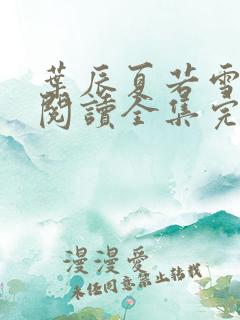 葉辰夏若雪
閱讀全集完
漫漫愛
未经同意禁止转载